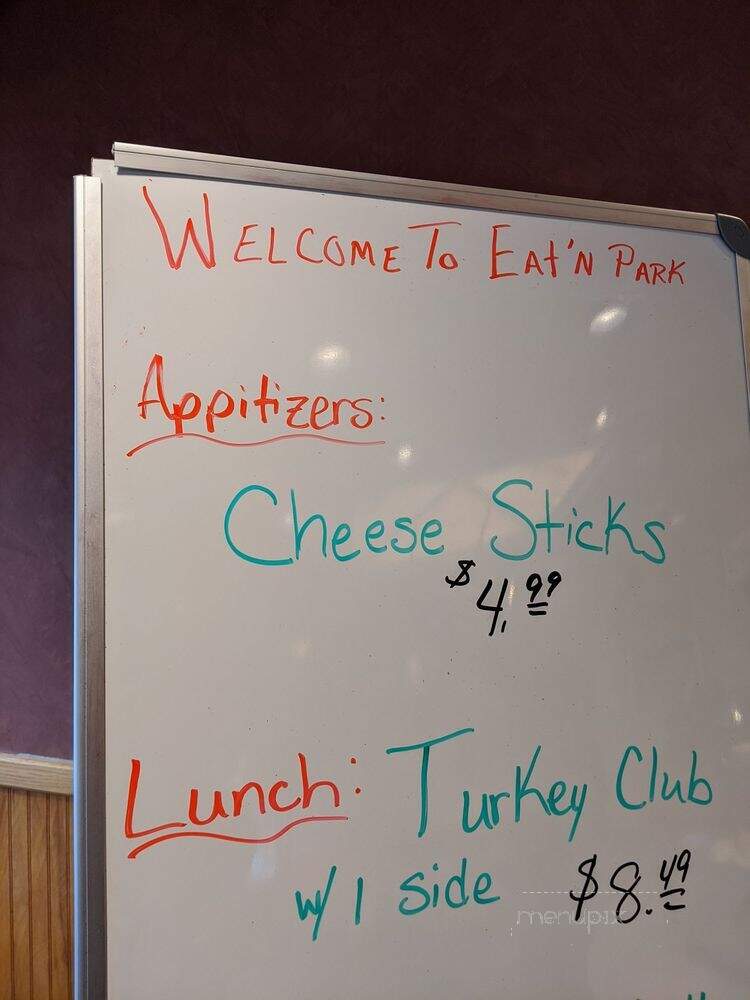 WELCOME TO EAT'N PARK
Appitizers:
Cheese Sticks
$4.99
Lunch: Turkey Club
w/ 1 side $8.49
menupix